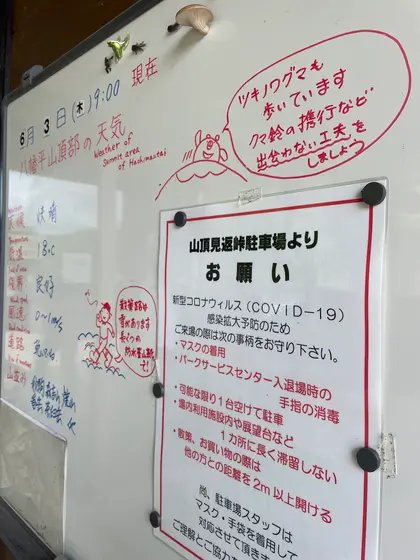 6月 3日(木) 9:00 現在
八幡平山頂部の天気
Weather of
Summit area
of Hachimantai
ツキノワグマも
歩いています
クマ鈴の携行など
出会わない工夫を
しましょう
天候
快晴
気温
18℃
視界
良好
風速
0〜1m/s
道路
散策路は
雪があります
長ぐつ
防水登山靴
山頂見返峠駐車場より
お願い
新型コロナウィルス(COVID-19)
感染拡大予防のため
ご来場の際は次の事柄をお守り下さい。
・マスクの着用
・パークサービスセンター入退場時の
手指の消毒
・可能な限り1台空けて駐車
・場内利用施設内や展望台など
1カ所に長く滞留しない
・散策、お買い物の際は
他の方との距離を2m以上開ける
尚、駐車場スタッフは
マスク・手袋を着用して
対応させて頂きま
ご理解とご協力を